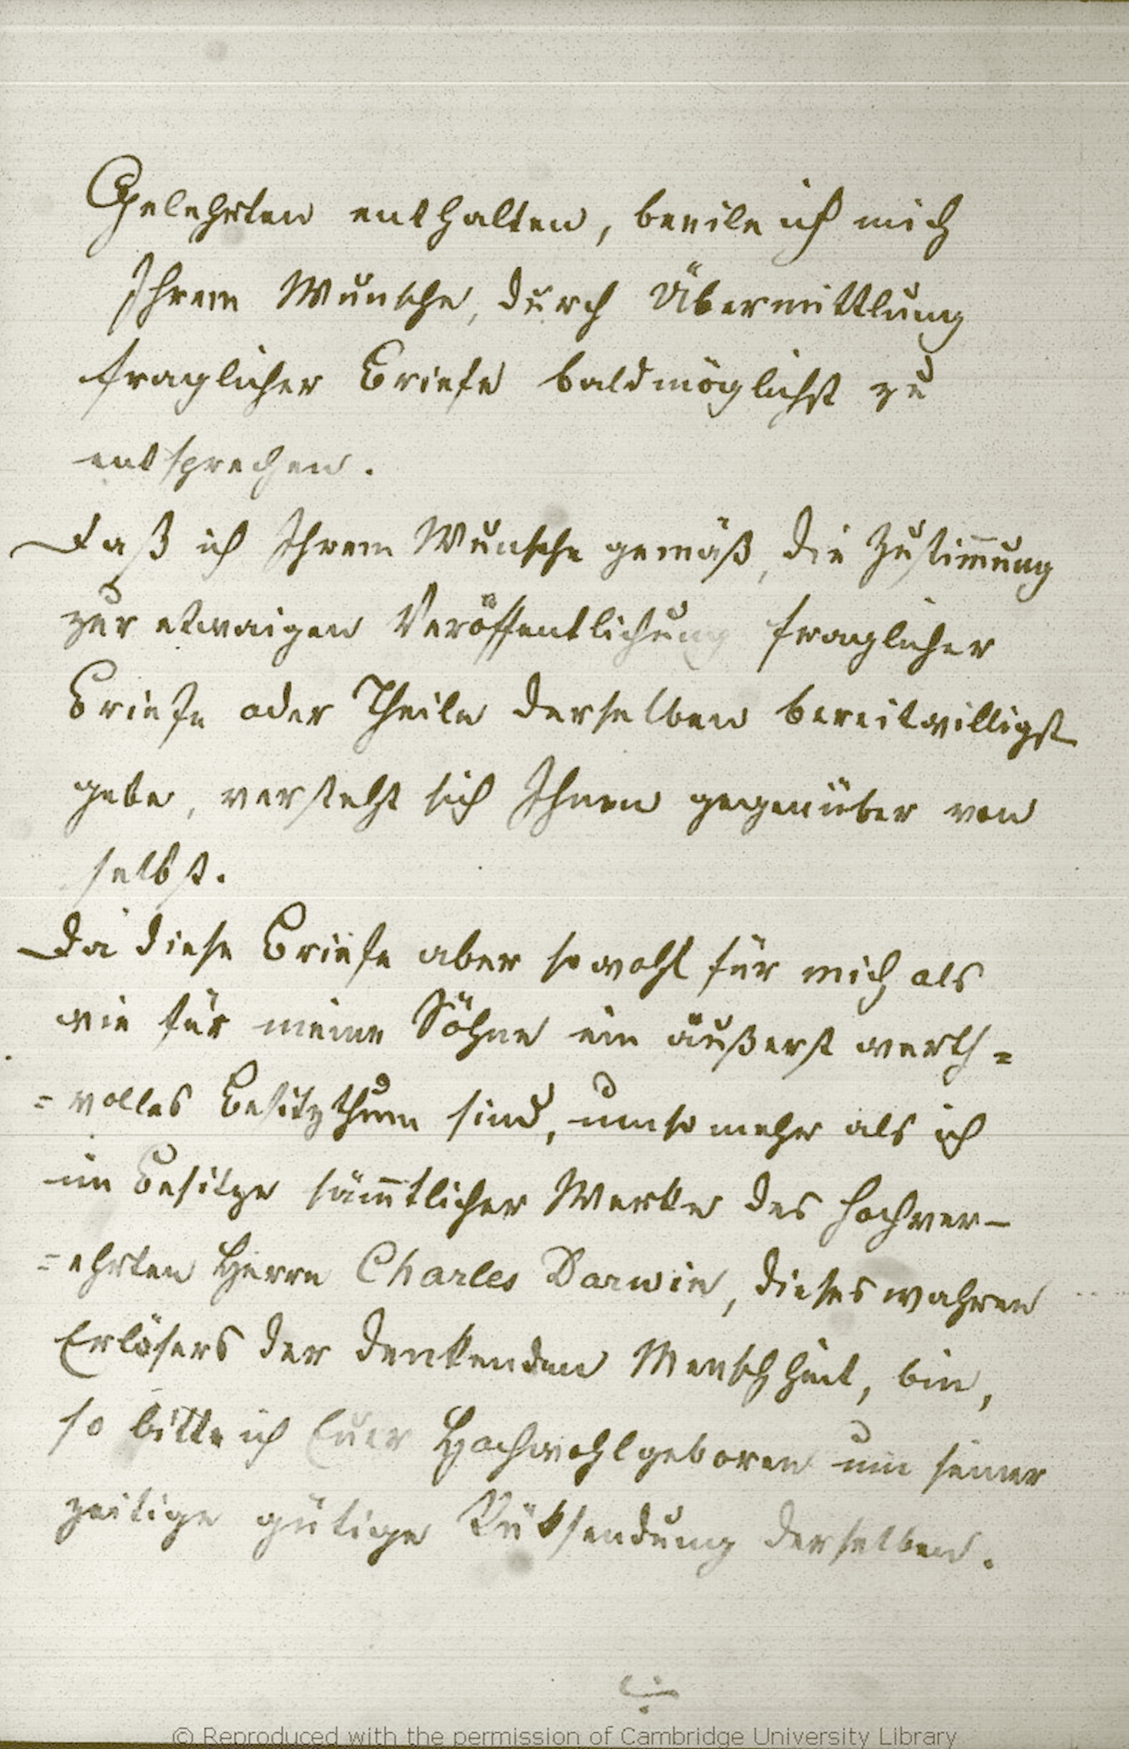 Gelehrten enthalten, beeile ich mich
Ihrem Wunsche, durch Übermittlung
fraglicher Briefe baldmöglichst zu
entsprechen.
Daß ich Ihrem Wunsche gemäß, die Zustim̅ung
zur etwaigen Veröffentlichung fraglicher
Briefe oder Theile derselben bereitwilligst
gebe, versteht sich Ihnen gegenüber von
selbst.
Da diese Briefe aber sowohl für mich als
wie für meine Söhne ein äußerst werth=
=volles Besitzthum sind, umso mehr als ich
im Besitze säm̅tlicher Werke des hochver-
=ehrten Herrn Charles Darwin, dieses wahren
Erlösers der denkenden Menschheit, bin,
so bitte ich Euer Hochwohlgeboren um seiner
zeitige gütige Rüksendung derselben.
© Reproduced with the permission of Cambridge University Library